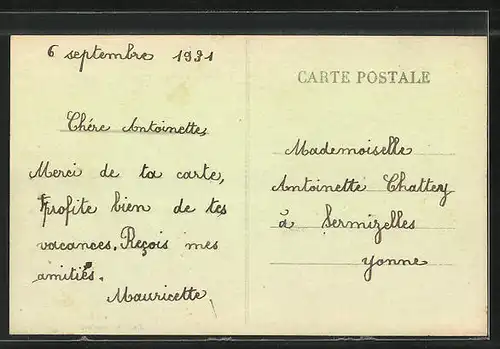 6 septembre 1931
Chère Antoinette,
Merci de ta carte,
Profite bien de tes
vacances. Reçois mes
amitiés.
Mauricette
CARTE POSTALE
Mademoiselle
Antoinette Chattey
à Sermizelles
Yonne